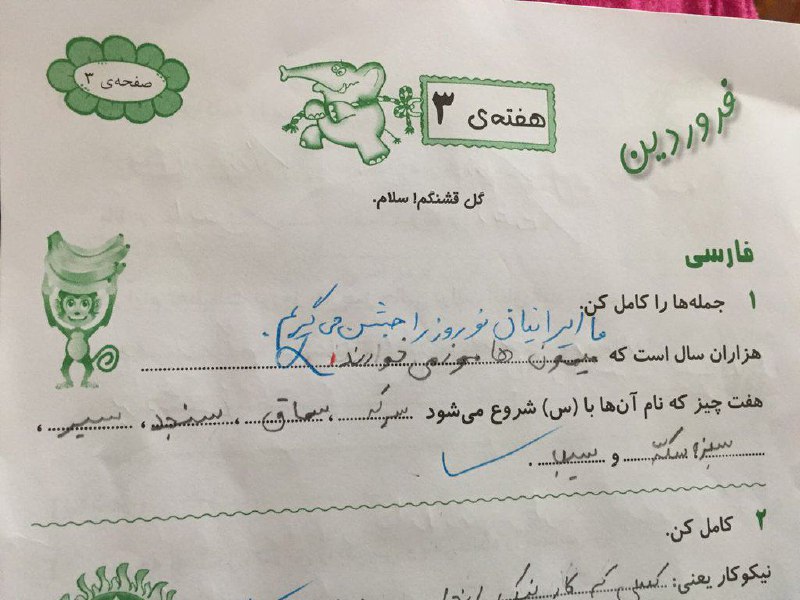 صفحه‌ی ۳
هفته‌ی ۳
فروردین
گل قشنگم! سلام.
فارسی
۱ جمله‌ها را کامل کن.
ما ایرانیان نوروز را جشن می گیریم.
هزاران سال است که میمون ها موز می خورند.
هفت چیز که نام آن‌ها با (س) شروع می‌شود سرکه ، سماق ، سنجد ، سیر ،
سبزه سکّه و سیب .
۲ کامل کن.
نیکوکار یعنی: کسی که کار نیک